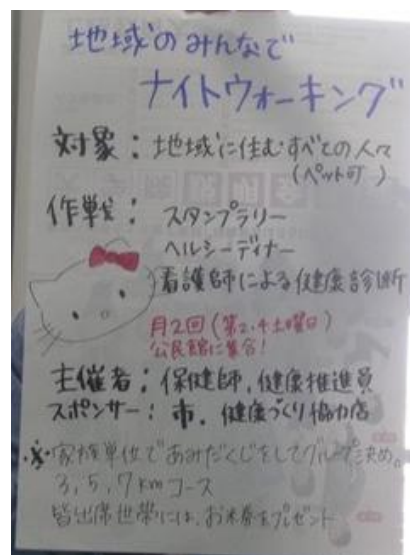 地域のみんなで
ナイトウォーキング
対象：地域に住むすべての人々
(ペット可)
作戦：スタンプラリー
ヘルシーディナー
看護師による健康診断
月2回(第2,4土曜日)
公民館に集合!
主催者：保健師,健康推進員
スポンサー：市,健康づくり協力店
※家族単位であみだくじをしてグループ決め。
3,5,7kmコース
皆出席世帯には、お米券をプレゼント